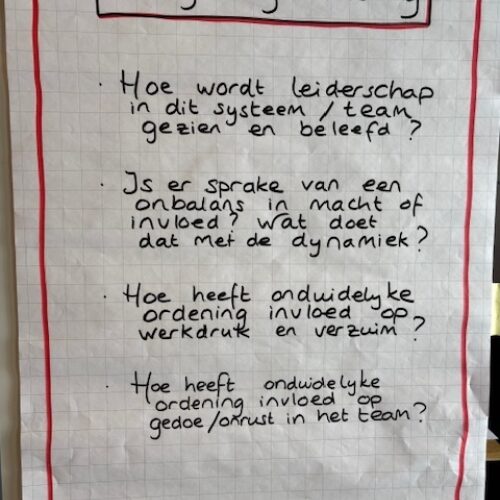 · Hoe wordt leiderschap
in dit systeem / team
gezien en beleefd?
· Is er sprake van een
onbalans in macht of
invloed? Wat doet
dat met de dynamiek?
· Hoe heeft onduidelyke
ordening invloed op
werkdruk en verzuim?
· Hoe heeft onduidelyke
ordening invloed op
gedoe/onrust in het team?